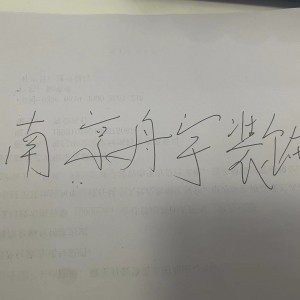 南京舟宇装饰